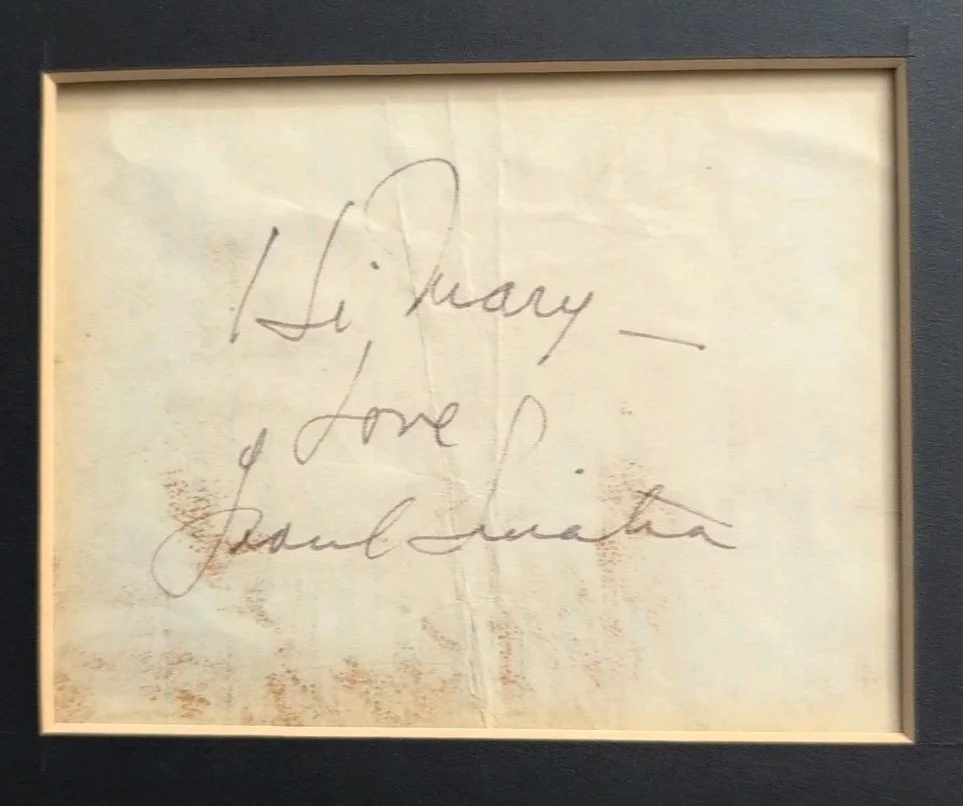 Hi Mary —
Love
Frank Sinatra